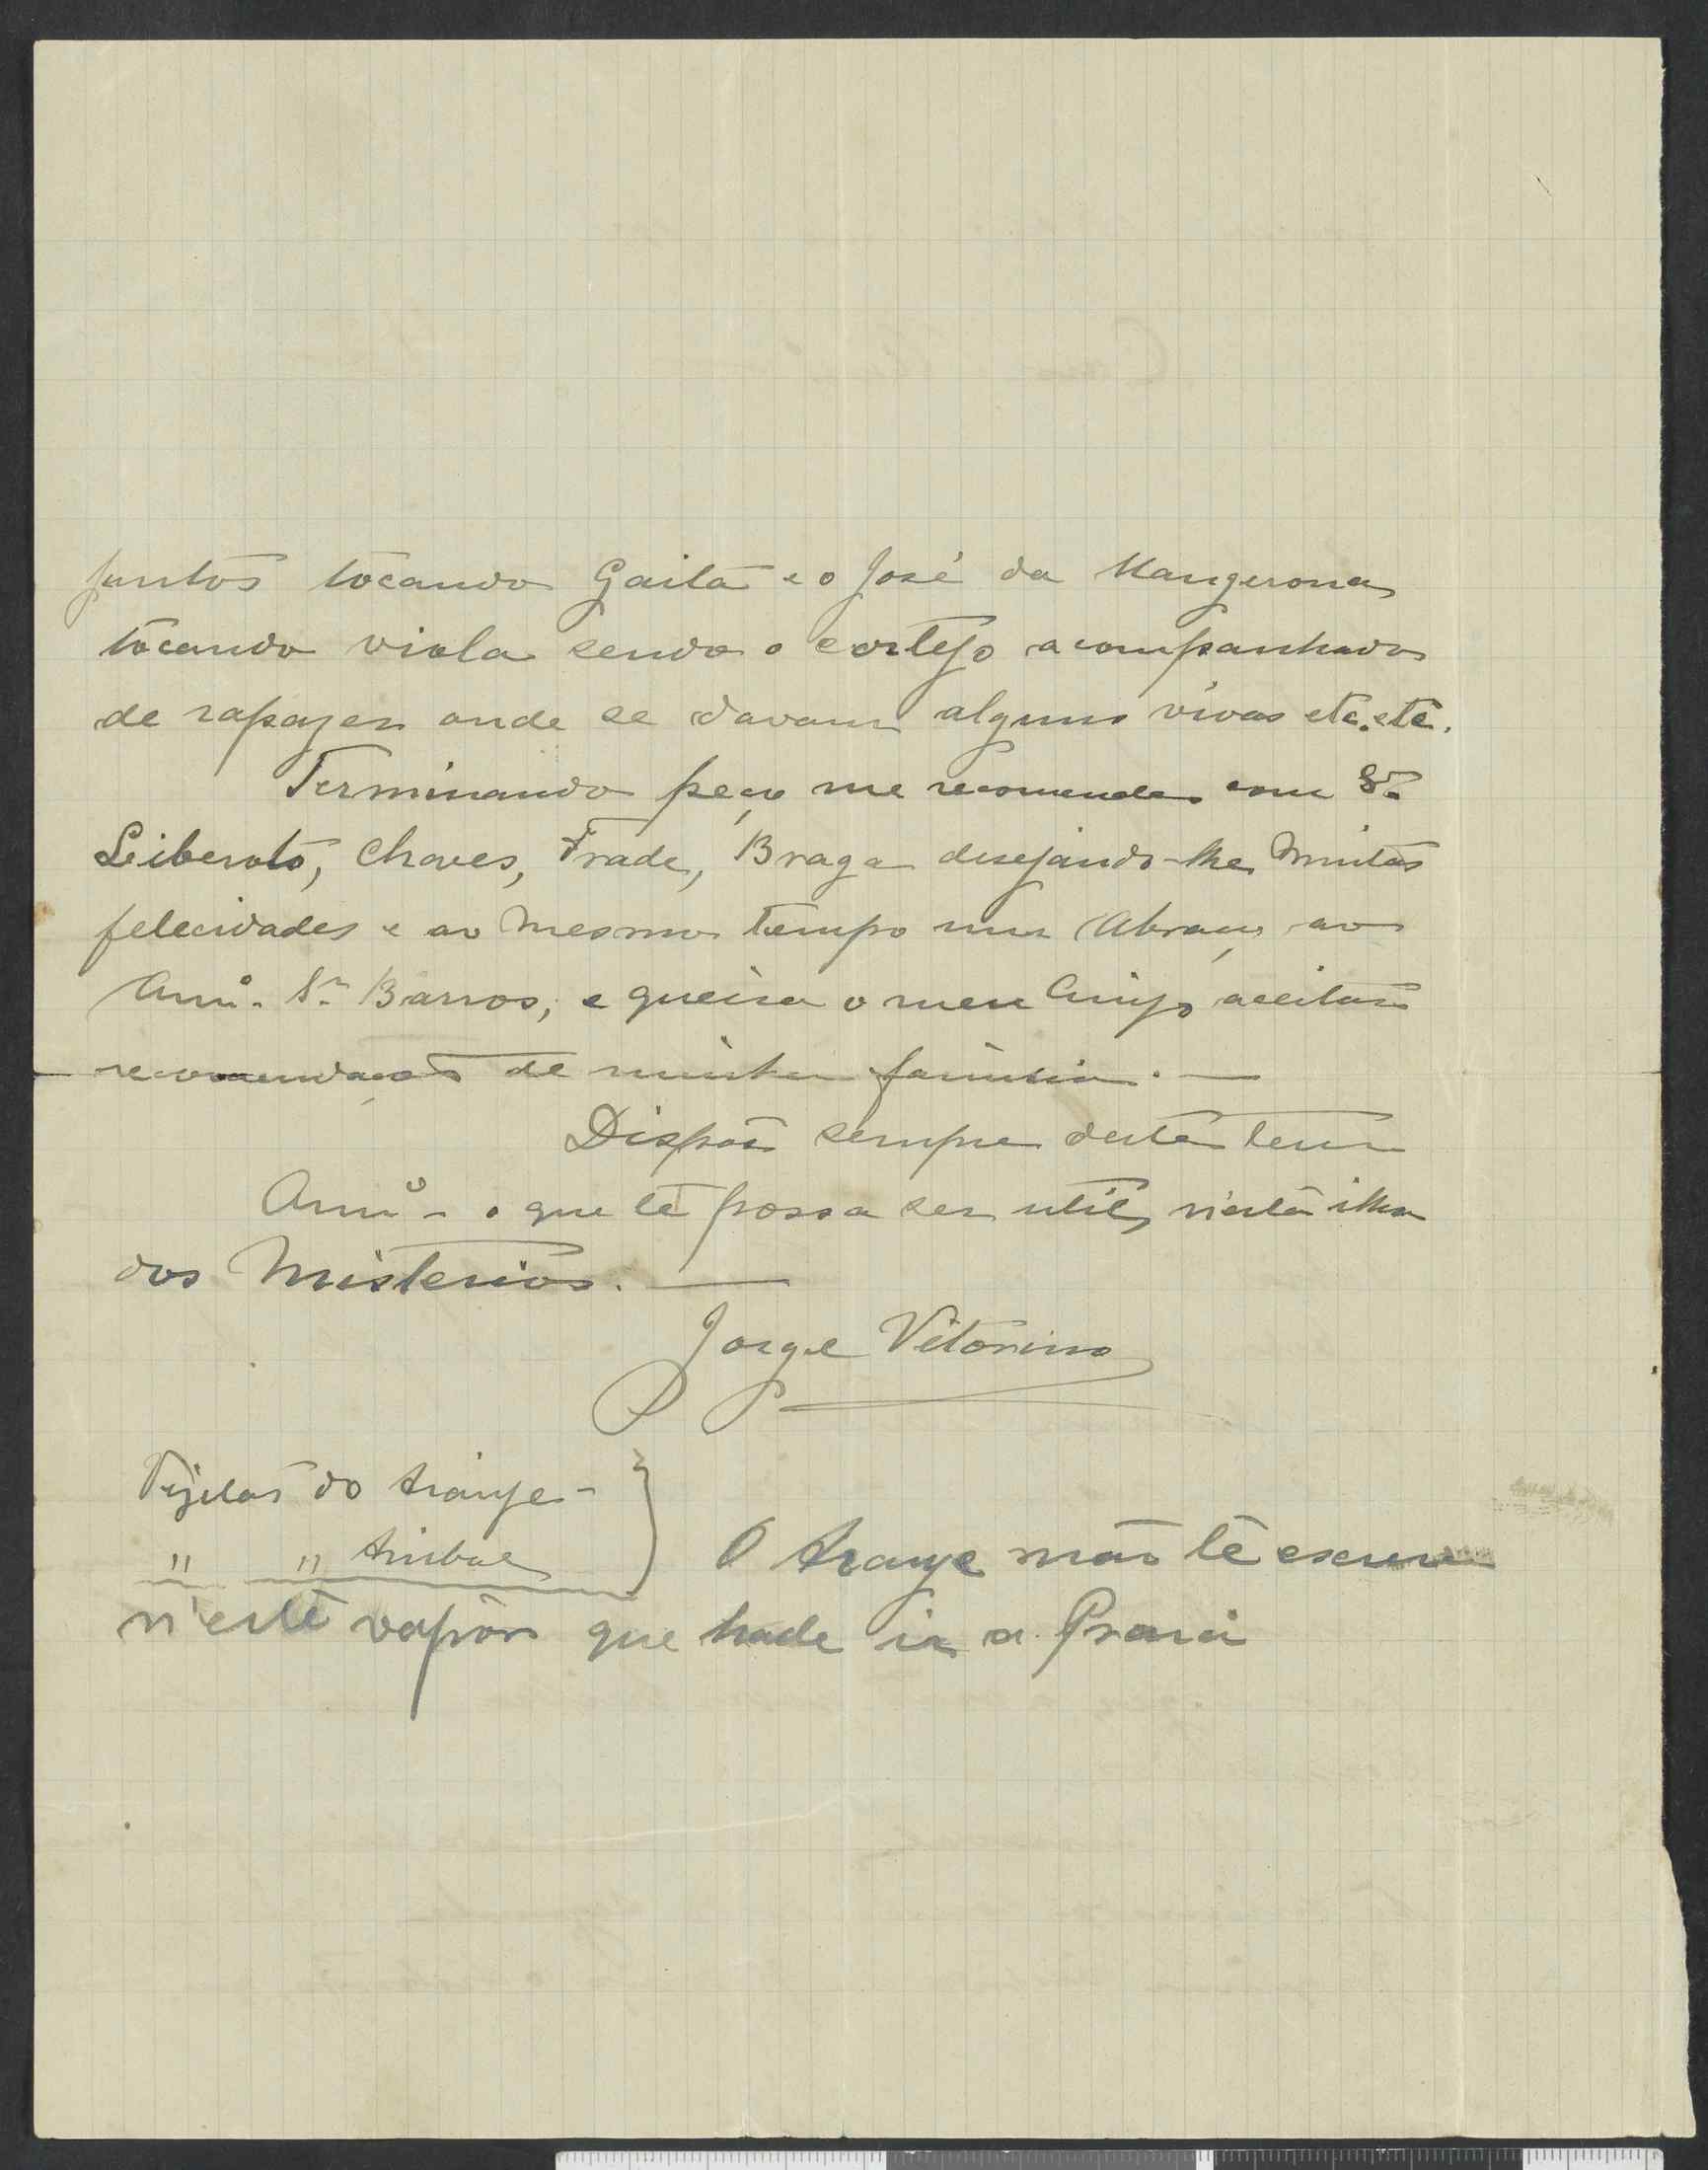 juntos tocando Gaita e o José da Mangerona
tocando viola sendo o cortejo acompanhado
de rapazes onde se davam alguns vivas etc. etc.
Terminando peço me recomendes com Sr.
Liberato, Chaves, Frade, Braga desejando-lhe muitas
felecidades e ao mesmo tempo um Abraço ao
Amº. Sr. Barros, e queira o meu Amigo aceitar
recomendações de minha familia. —
Dispõe sempre deste teu
Amº - o que te possa ser util n'esta ilha
dos Misterios. —
Jorge Vitorino
do Araujo -
" " Anibal
O Araujo não te escreve
n'este vapôr que hade ir a Praia